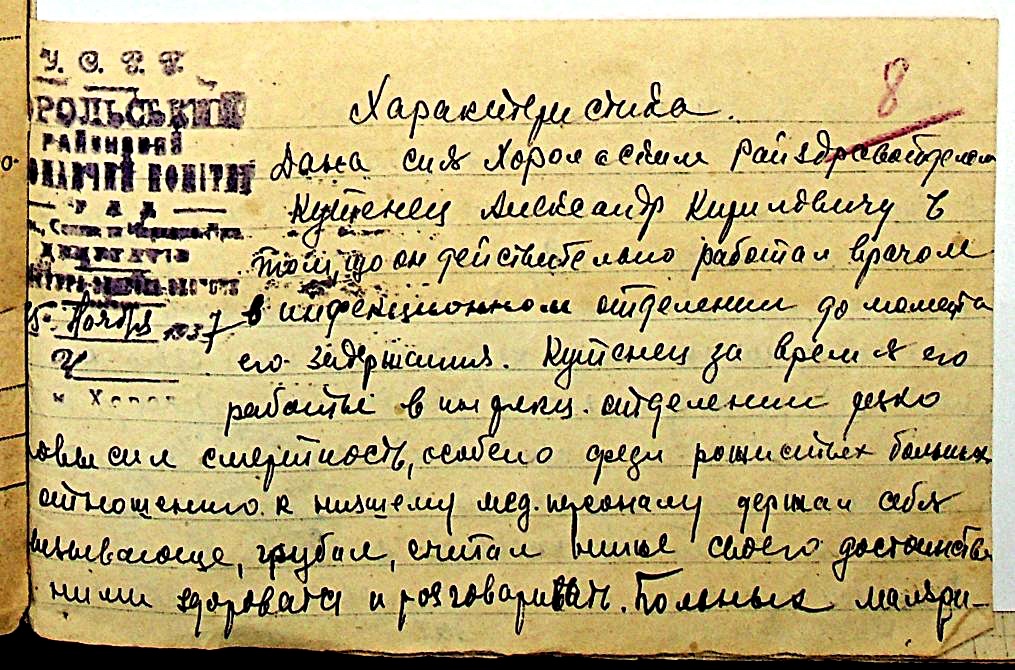 У. С. Р. Р.
РОЛЬСЬКИЙ
РАЙОННИЙ
КОМІТЕТ
Ноября 1937
Характеристика.
8
Дана сия Хорол Райздравотделом
Кутенец Александр Кириловичу в
том, що он действительно работал врачом
в инфекционном отделении до момента
его задержания. Кутенец за время его
работы в инфекц. отделении резко
повысил смертность, особено среди рожистых больных
отношению к низшему мед. персоналу держал себя
вызывающе, грубил, считал ниже своего достоинства
ними здороватся и розговаривать. Больных маляри-